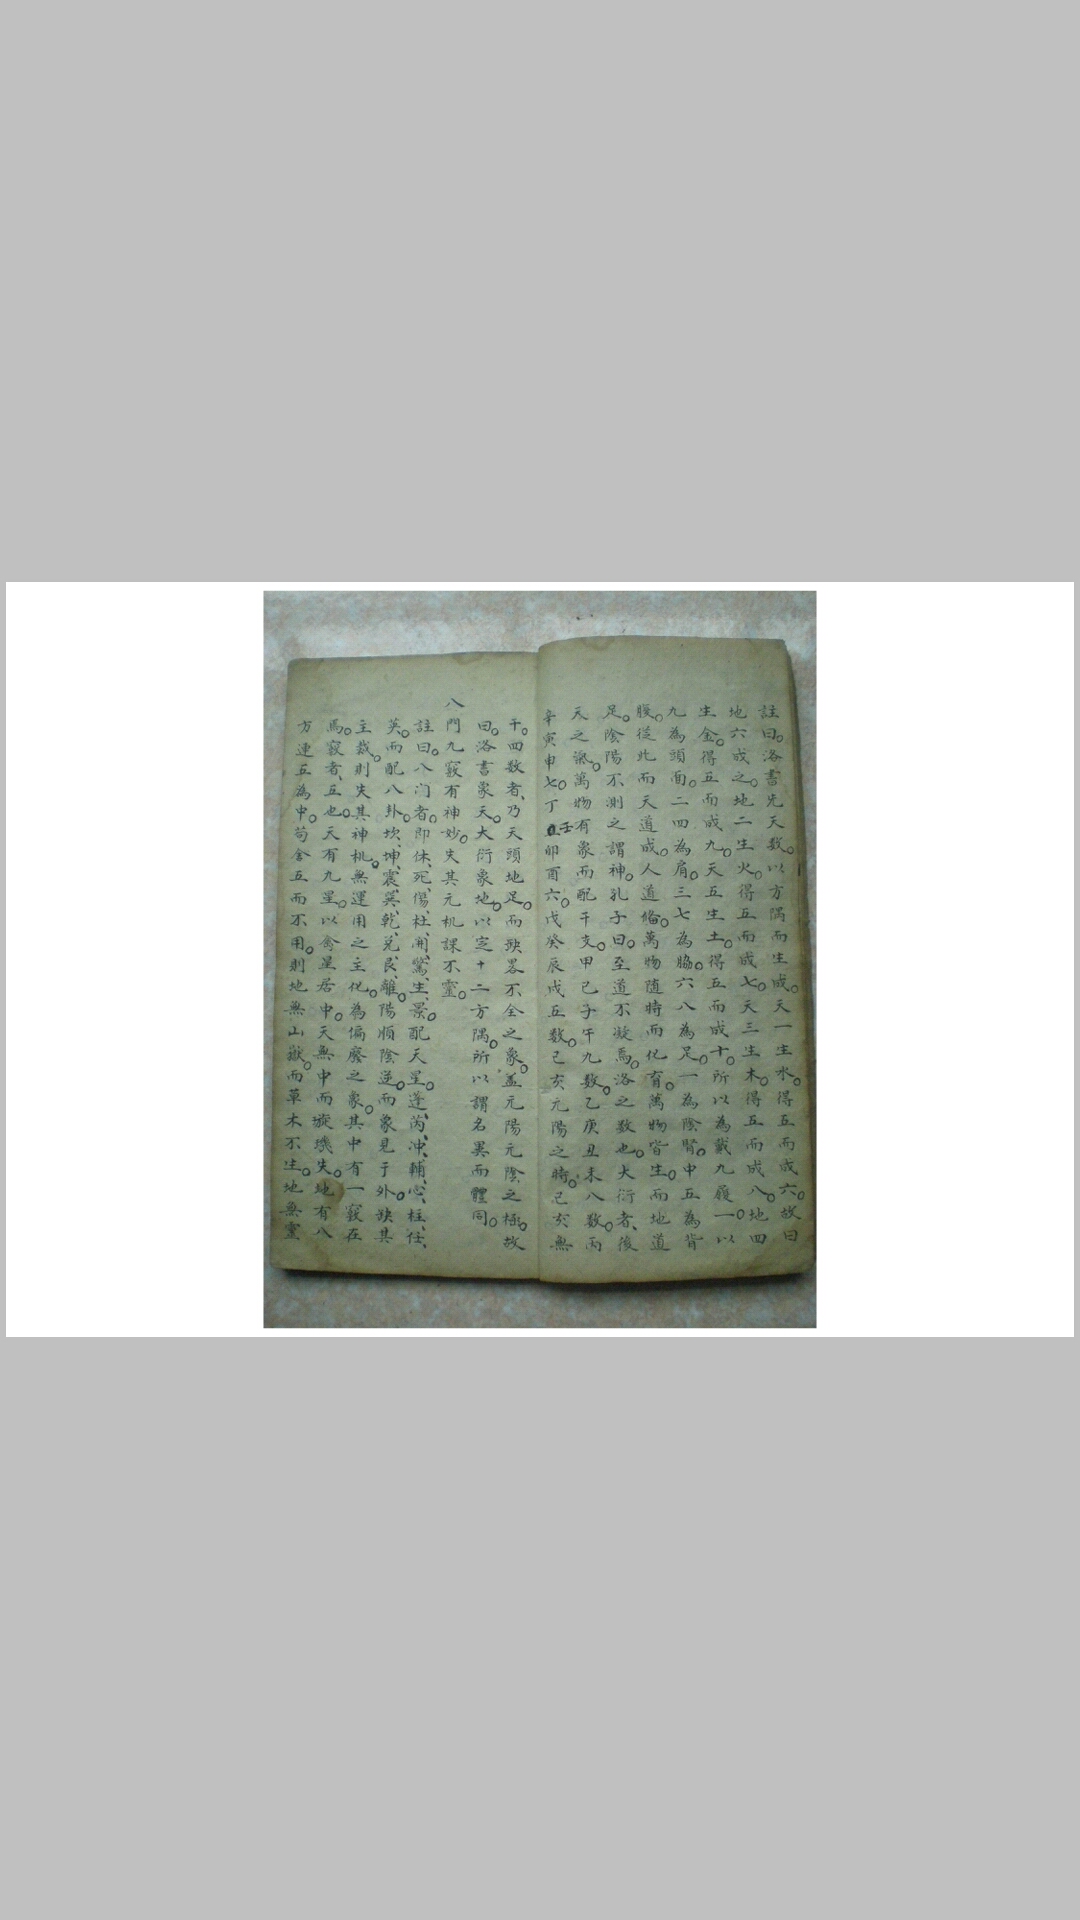 註曰。洛書先天数。以方隅而生成。天一生水。得五而成六。故曰
地六成之。地二生火。得五而成七。天三生木。得五而成八。地四
生金。得五而成九。天五生土。得五而成十。所以為戴九履一。以
九為頭角。二四為肩。三七為脇。六八為足。一為陰腎。中五為背
腹。從此而天道成。人道俻。萬物隨時而化育。萬物皆生。而地道
足。陰陽不測之謂神。孔子曰。至道不凝焉。洛之数也。大衍者、後
天之氣。萬物有象而配干支。甲己子午九数。乙庚丑未八数。丙
辛寅申七。丁壬卯酉六。戊癸辰戌五数。己亥元陽之時。己亥無
干。四数者、乃天頭地足。而缺畧不全之象。盖元陽元陰之極。故
曰。洛書象天。大衍象地。以定十二方隅。所以謂名異而體同。
八門九竅有神妙。失其元机課不靈。
註曰。八门者。即休、死、傷、杜、開、驚、生、景。配天星。蓬、芮、冲、輔、心、柱、任、
英。而配八卦。坎、坤、震、巽、乾、兌、艮、離。陽順陰逆。而象見于外。缺其
主裁。則失其神机。無運用之主化。為偏廢之象。其中有一竅在
焉。竅者、五也。天有九星。以禽星居中。天無中而璇璣失。地有八
方連五為中。苟舍五而不用。則地無山嶽。而草木不生。地無靈